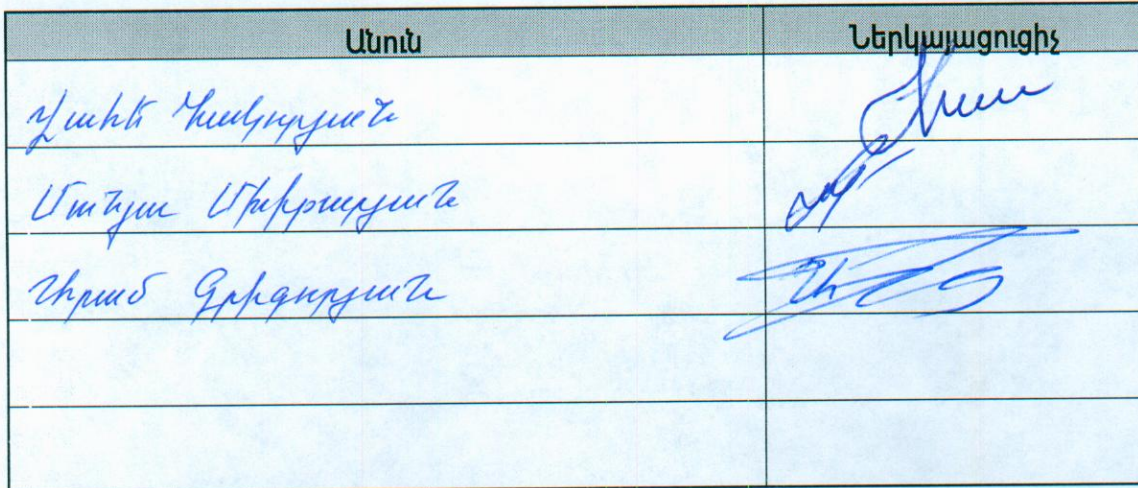 Անուն Ներկայացուցիչ
Վահե Հակոբյան
Մանյա Մխիթարյան
Տիրան Գրիգորյան